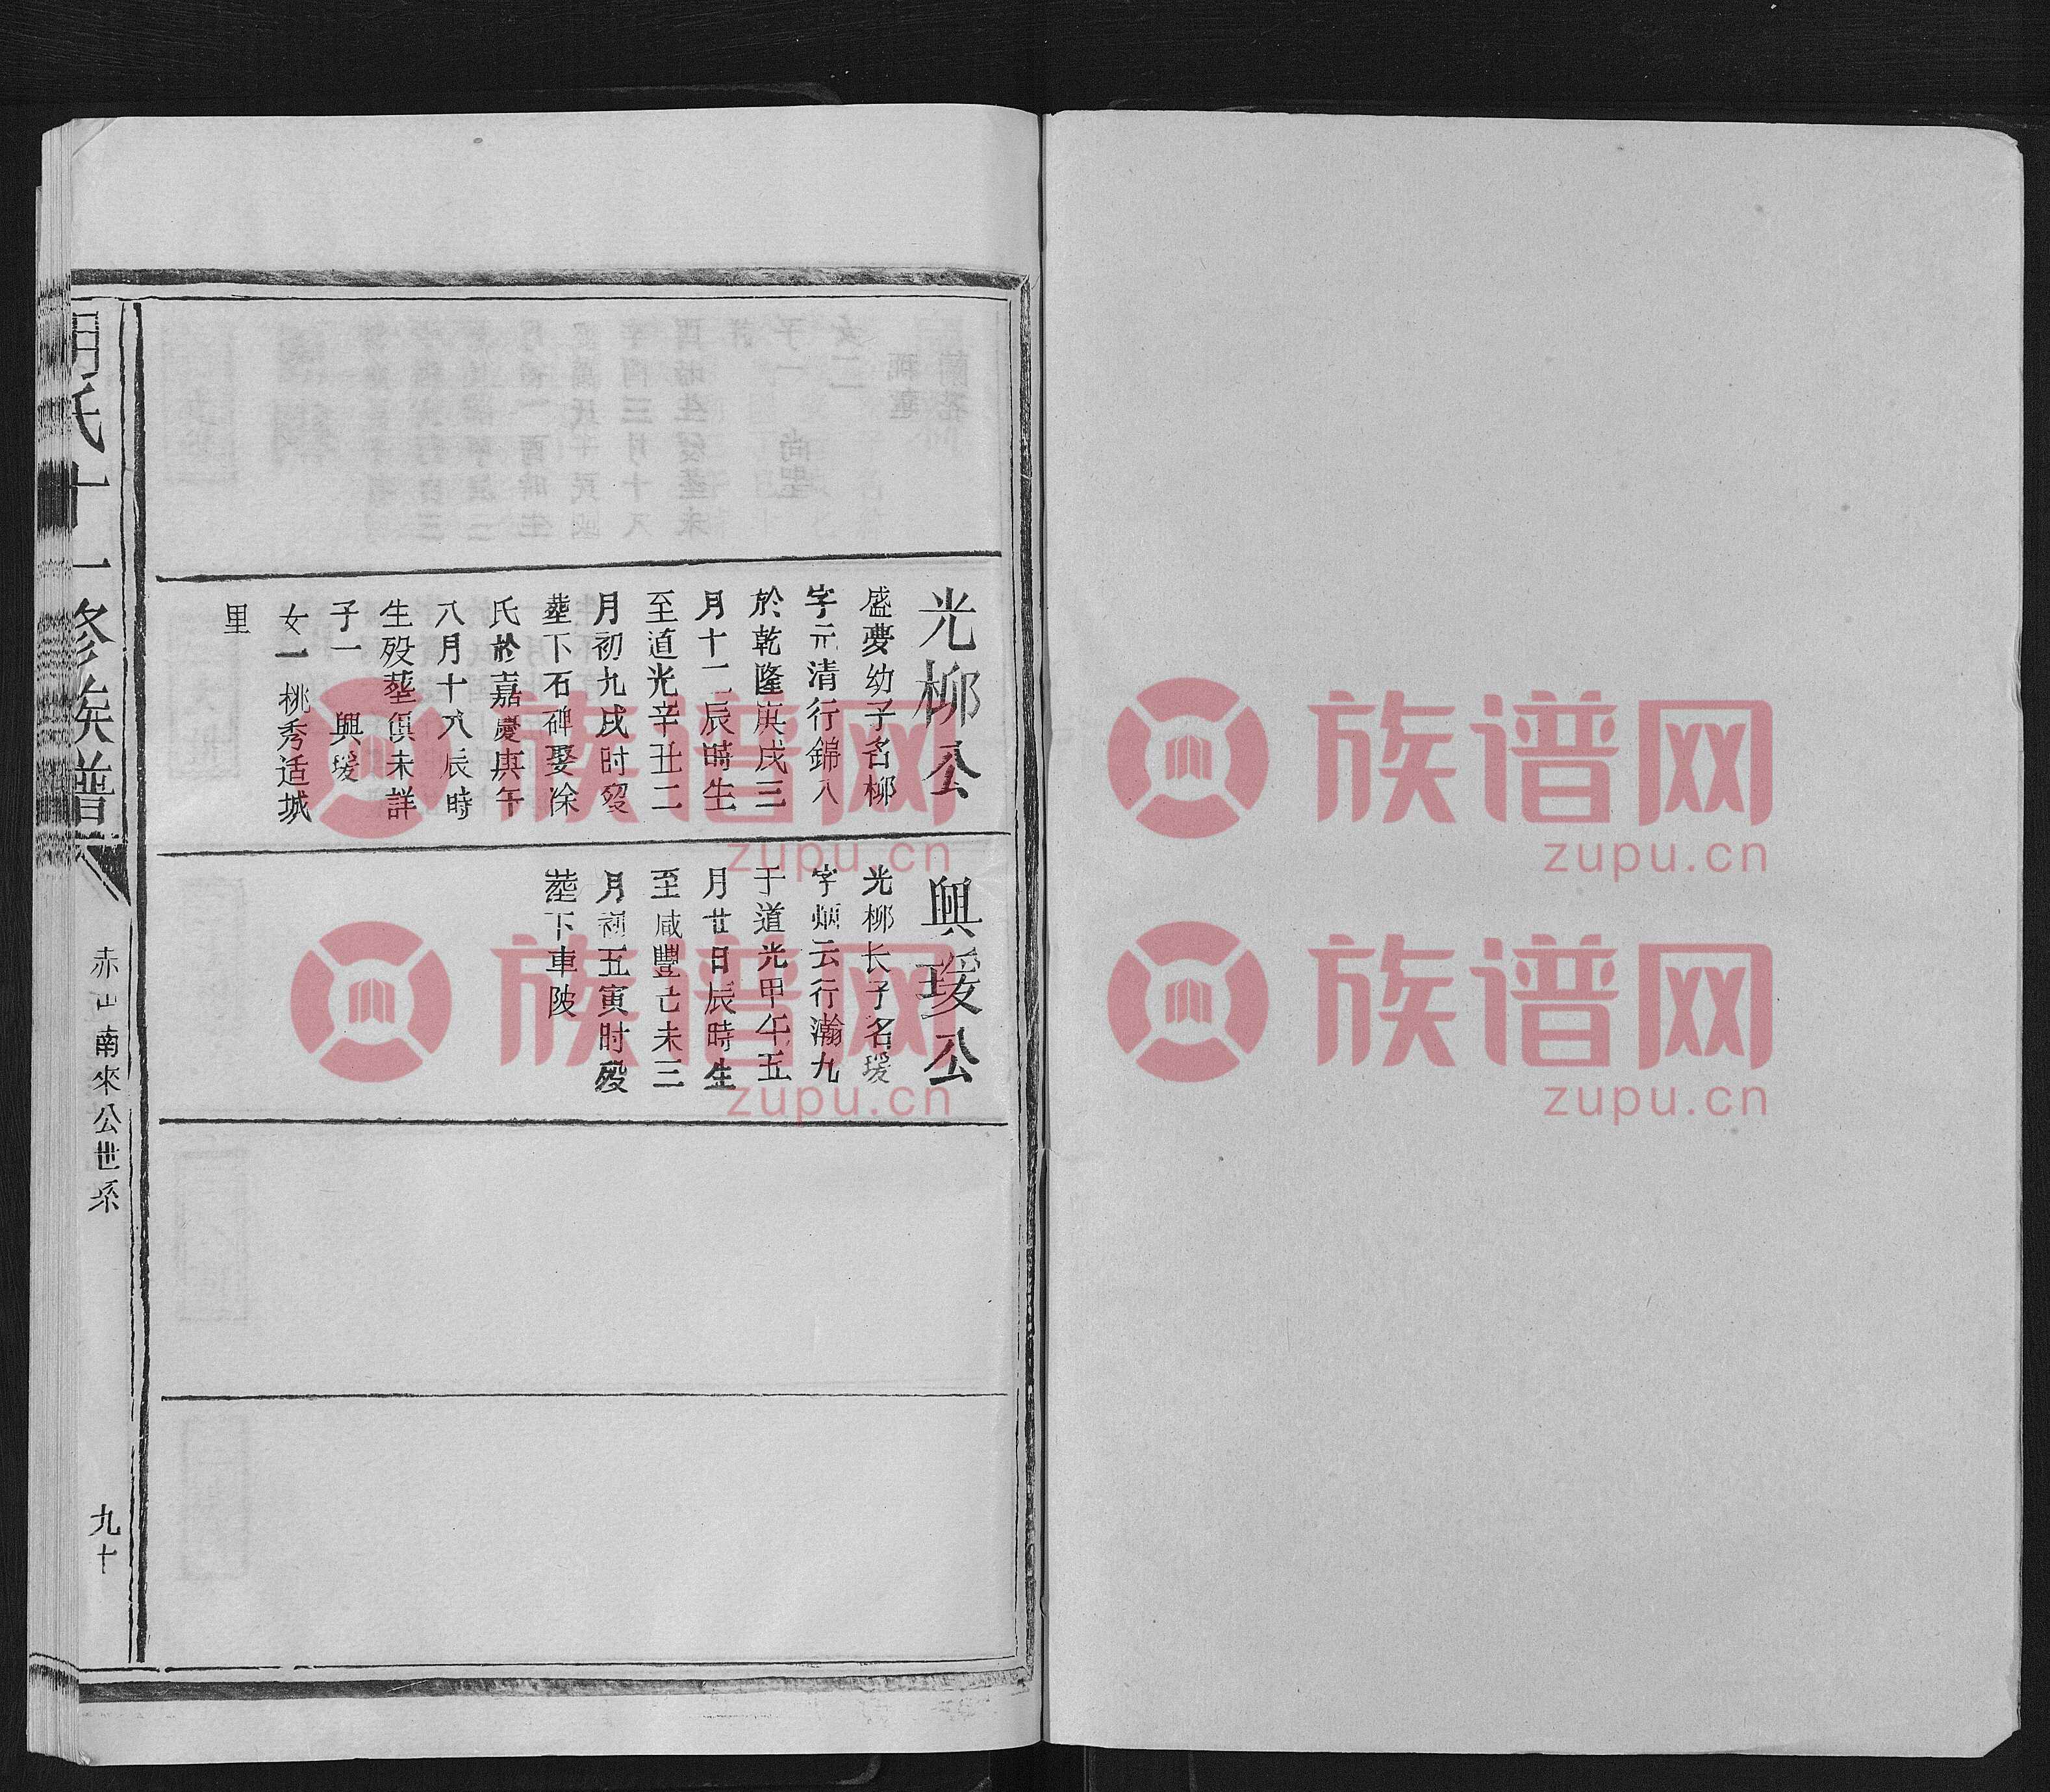 光柳公
盛夢幼子名柳
字元清行錦八
於乾隆庚戌三
月十二辰時生
至道光辛丑二
月初九戌时歿
塟下石碑娶凃
氏於嘉慶庚午
八月十八辰時
生殁塟俱未詳
子一 興瑗
女一桃秀适城
里
興瑗公
光柳长子名瑗
字炳云行瀚九
于道光甲午五
月廿日辰時生
至咸豐己未三
月初五寅时殁
塟下車陂
氏十一修族譜
赤山南來公世系
九十
族谱网
zupu.cn
族谱网
zupu.cn
族谱网
zupu.cn
族谱网
zupu.cn